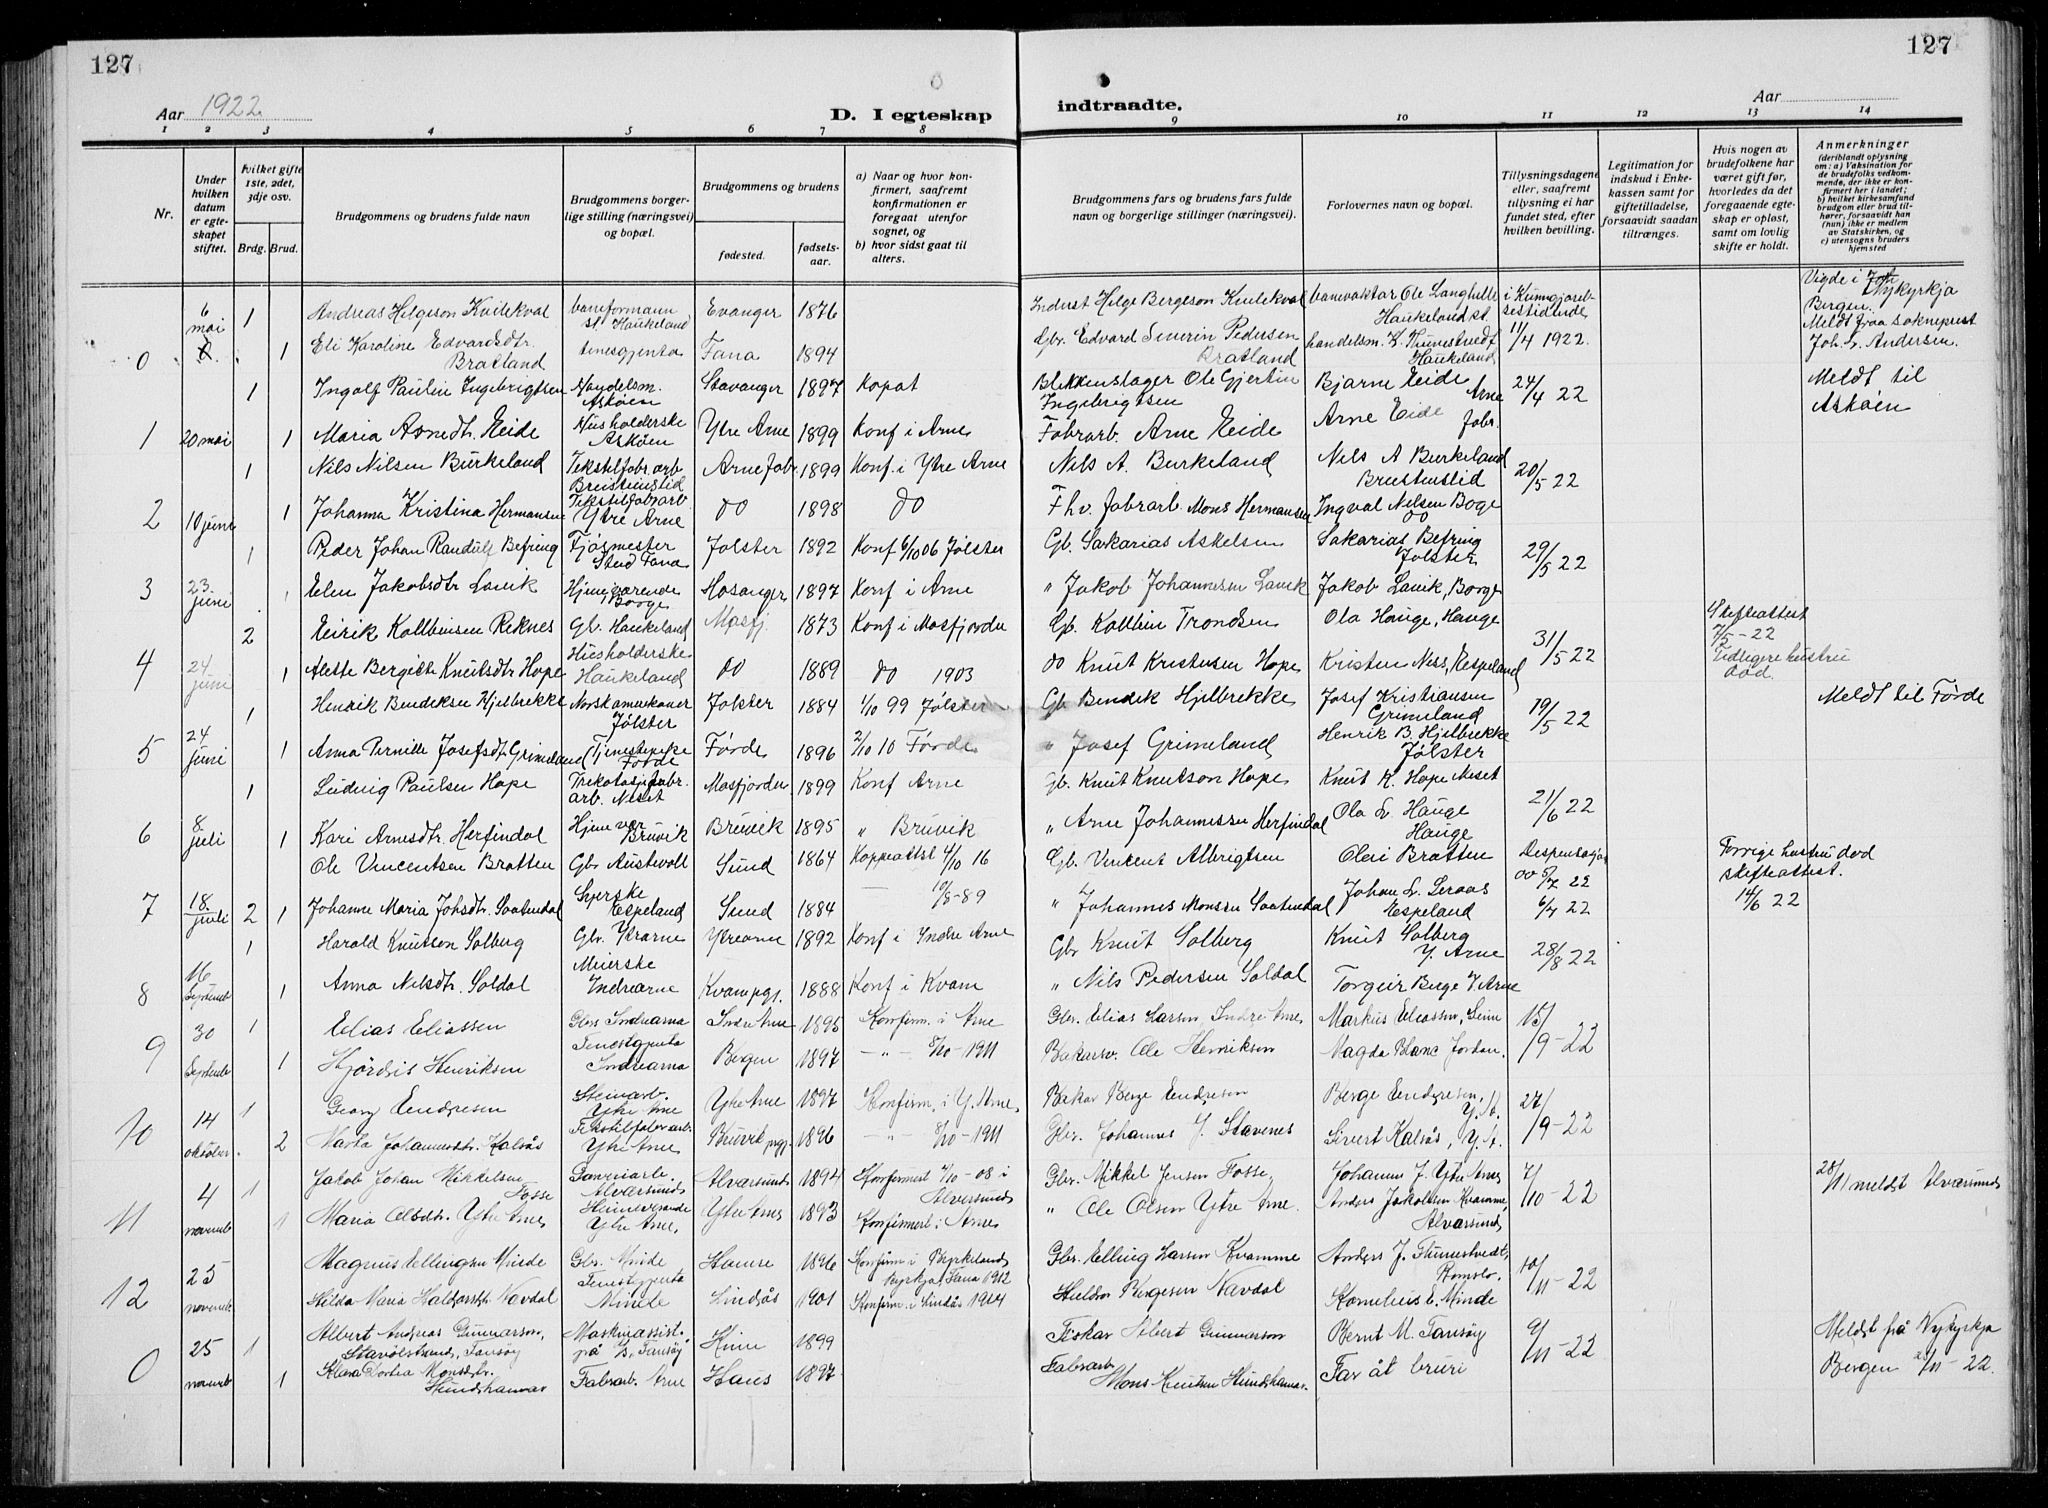 127
127
Aar 1922
D. I egteskap
indtraadte.
Aar
1 2 3 4 5 6 7 8 9 10 11 12 13 14
Nr.
Under hvilken datum er egteskapet stiftet.
hvilket gifte 1ste, 2det, 3dje osv.
Brdg. Brud.
Brudgommens og brudens fulde navn
Brudgommens borgerlige stilling (næringsvei) og bopæl.
Brudgommens og brudens
fødested.
fødselsaar.
a) Naar og hvor konfirmert, saafremt konfirmationen er foregaat utenfor sognet, og
b) hvor sidst gaat til alters.
Brudgommens fars og brudens fars fulde navn og borgerlige stillinger (næringsvei).
Forlovernes navn og bopæl.
Tillysningsdagene eller, saafremt tillysning ei har fundet sted, efter hvilken bevilling.
Legitimation for indskud i Enkekassen samt for giftetilladelse, forsaavidt saadan tiltrænges.
Hvis nogen av brudefolkene har været gift før, hvorledes da det foregaaende egteskap er opløst, samt om lovlig skifte er holdt.
Anmerkninger
(deriblandt oplysning om: a) Vaksination for de brudefolks vedkommende, der ikke er konfirmert her i landet; b) hvilket kirkesamfund brudgom eller brud tilhører, forsaavidt han (hun) ikke er medlem av Statskirken, og c) utensogns bruders hjemsted
0 6 mai 1 Andreas Helgeson Kvitekval baneformann st. Haukeland Evanger 1876 Inderst Helge Bergeson Kvitekval banevaktar Ole Langhelle Haukeland st. i Kunngjørelsestidende 11/4 1922. Vigde i Nykyrkja Bergen. Meldt fraa sokneprest Joh. L. Andersen.
1 Eli Karoline Edvardsdtr. Bratland tenesgjenta Fana 1894 Gbr. Edvard Severin Pedersen Bratland handelsm. K. Tunestvedt Haukeland
1 Ingolf Paulin Ingebrigtsen Handelsm. Askøen Stavanger 1897 Kopat Blikkenslager Ole Gjertin Ingebrigtsen Bjarne Eide Arne 24/4 22 Meldt til Askøen
1 20 mai 1 Maria Arnedtr. Eide Husholderske Askøen Ytre Arne 1899 Konf i Arne Fabrarb. Arne Eide Arne Eide fabr.
1 Nils Nilsen Burkeland Tekstilfabr. arb Breisteinslid Arne Fabr 1899 Konf. i Ytre Arne Nils A. Burkeland Nils A Burkeland Breistenslid 20/5 22
2 10 juni 1 Johanna Kristina Hermansen Tekstilfabrarb Ytre Arne do 1898 do Fhv. fabrarb. Mons Hermansen Ingval Nilsen Boge do
1 Peder Johan Randulf Befring Fjøsmester Stend Fana Jolster 1892 Konf 6/10 06 Jølster Gb. Sakarias Askelsen Sakarias Befring Jølster 29/5 22
3 23 juni 1 Elen Jakobsdtr Lavik Hjemmeværende Borge Hosanger 1897 Konf i Arne " Jakob Johannesen Lavik Jakob Lavik, Borge
2 Eirik Kolbeinsen Reknes Gb. Haukeland Masfj. 1873 Konf i Masfjorden Gb. Kolbein Trondsen Ola Hauge, Hauge 31/5 22 Skifteattest 7/5-22 Tidligere hustru død.
4 24 juni 1 Alette Bergitte Knutsdtr Hope Husholderske Haukeland do 1889 do 1903 do Knut Kristensen Hope Kristen Ness, Espeland
1 Henrik Bendeksen Hjelbrekke Norskamerikaner Jølster Jolster 1884 1/10 99 Jølster Gb Bendik Hjelbrekke Josef Kristiansen Grimeland 19/5 22 Meldt til Førde
5 24 juni 1 Anna Pernille Josefsdtr Grimeland Tjenestepike Førde Førde 1896 2/10 10 Førde " Josef Grimeland Henrik B. Hjelbrekke Jølster
1 Ludvig Paulsen Hope Trekotasjefabr. arb. Neset Masfjorden 1899 Konf Arne Gb. Knut Knutson Hope Knut K. Hope Neset 21/6 22
6 8. juli 1 Kari Arnesdtr. Herfindal Hjemmev. Bruvik Bruvik 1895 " Bruvik " Arne Johannessen Herfindal Ola L. Hauge Hauge
Ole Vincentsen Bratten Gbr Austevoll Sund 1864 Koppeattst 4/10 16 Gb. Vincent Albrigtsen Oleri Bratten Despensasjon do 5/7 22 Forrige hustru død skifteattest. 14/6 22
7 18. juli 2 1 Johanne Maria Johsdtr. Saatendal Syerske Espeland Sund 1884 10/8-89 " Johannes Monsen Saatendal Johan L. Seraas Espeland 6/7 22
1 Harald Knutson Solberg Gbr. Ytrarne Ytrearne 1892 Konf i Indre Arne Gbr Knut Solberg Knut Solberg Y. Arne 28/8 22
8 16 September 1 Anna Nilsdtr. Soldal Meierske Indrearne Kvam pgj. 1888 Konf i Kvam " Nils Pedersen Soldal Torgeir Berge Y. Arne
9 30 September 1 Elias Eliassen Gbr. Indrearna Indre Arne 1895 Konfirm. i Arne Gbr. Elias Larsen Indre Arne Markus Eliassen, Seim 15/9-22
1 Hjørdis Henriksen Tenestgjenta Indrearna Bergen 1897 -"- 8/10-1911 Bakarsv. Ole Henriksen Magda Blanc Jordan.
10 14 oktober 1 Georg Endresen Steinarb. Ytre Arne Ytre Arne 1897 Konfirm. i Y. Arne. Bakar Berge Endresen Berge Endresen, Y.A. 27/9-22
2 Marta Johannesdtr. Kalsås Tekstilfabr arb. Ytre Arne Bruvik pgj. 1896 -"- 8/10-1911 Gbr. Johannes J. Stavenes Sivert Kalsås, Y.A.
11 4 november 1 Jakob Johan Mikkelsen Fosse Garveriarb. Alværsund Alværsund 1894 Konfirmert 4/10-08 i Alversund Gbr. Mikkel Jensen Fosse, Johannes J. Ytre Arne 7/10-22 28/11 meldt Alværsund
1 Maria Olsdtr. Ytre Arne Heimeverande Ytre Arne, Ytre Arne 1893 Konfirmert i Arne " Ole Olsen Ytre Arne. Anders Jakobsen Kvamme, Alværsund
12 25 november Magnus Ellingsen Minde Gbr. Minde Hamre 1896 Konfirm i Byrkeland kyrkja, Fana 1912 Gbr. Elling Larsen Kvamme Anders J. Tunestvedt, Romslo. 10/11-22
Hilda Maria Haldorsdtr. Navdal Tenestgjenta Minde Lindås 1901 Konfirm. i Lindås 1914 Haldor Bergesen Navdal Kornelius E. Minde
0 25 november 1 Albert Andreas Gunnarson, Stavølstrand, Fansøy Maskinassist. på D/S, Fansøy Kinn 1899 Fiskar Albert Gunnarson Bernt M. Fansøy 9/11-22 Meldt frå Nykyrkja Bergen 28/11-22.
1 Klara Dortea Monsdtr. Hundshammar Fabrarb. Arne Haus 1897 Fabrarb Mons Knutsen Hundshammar. Far åt bruri